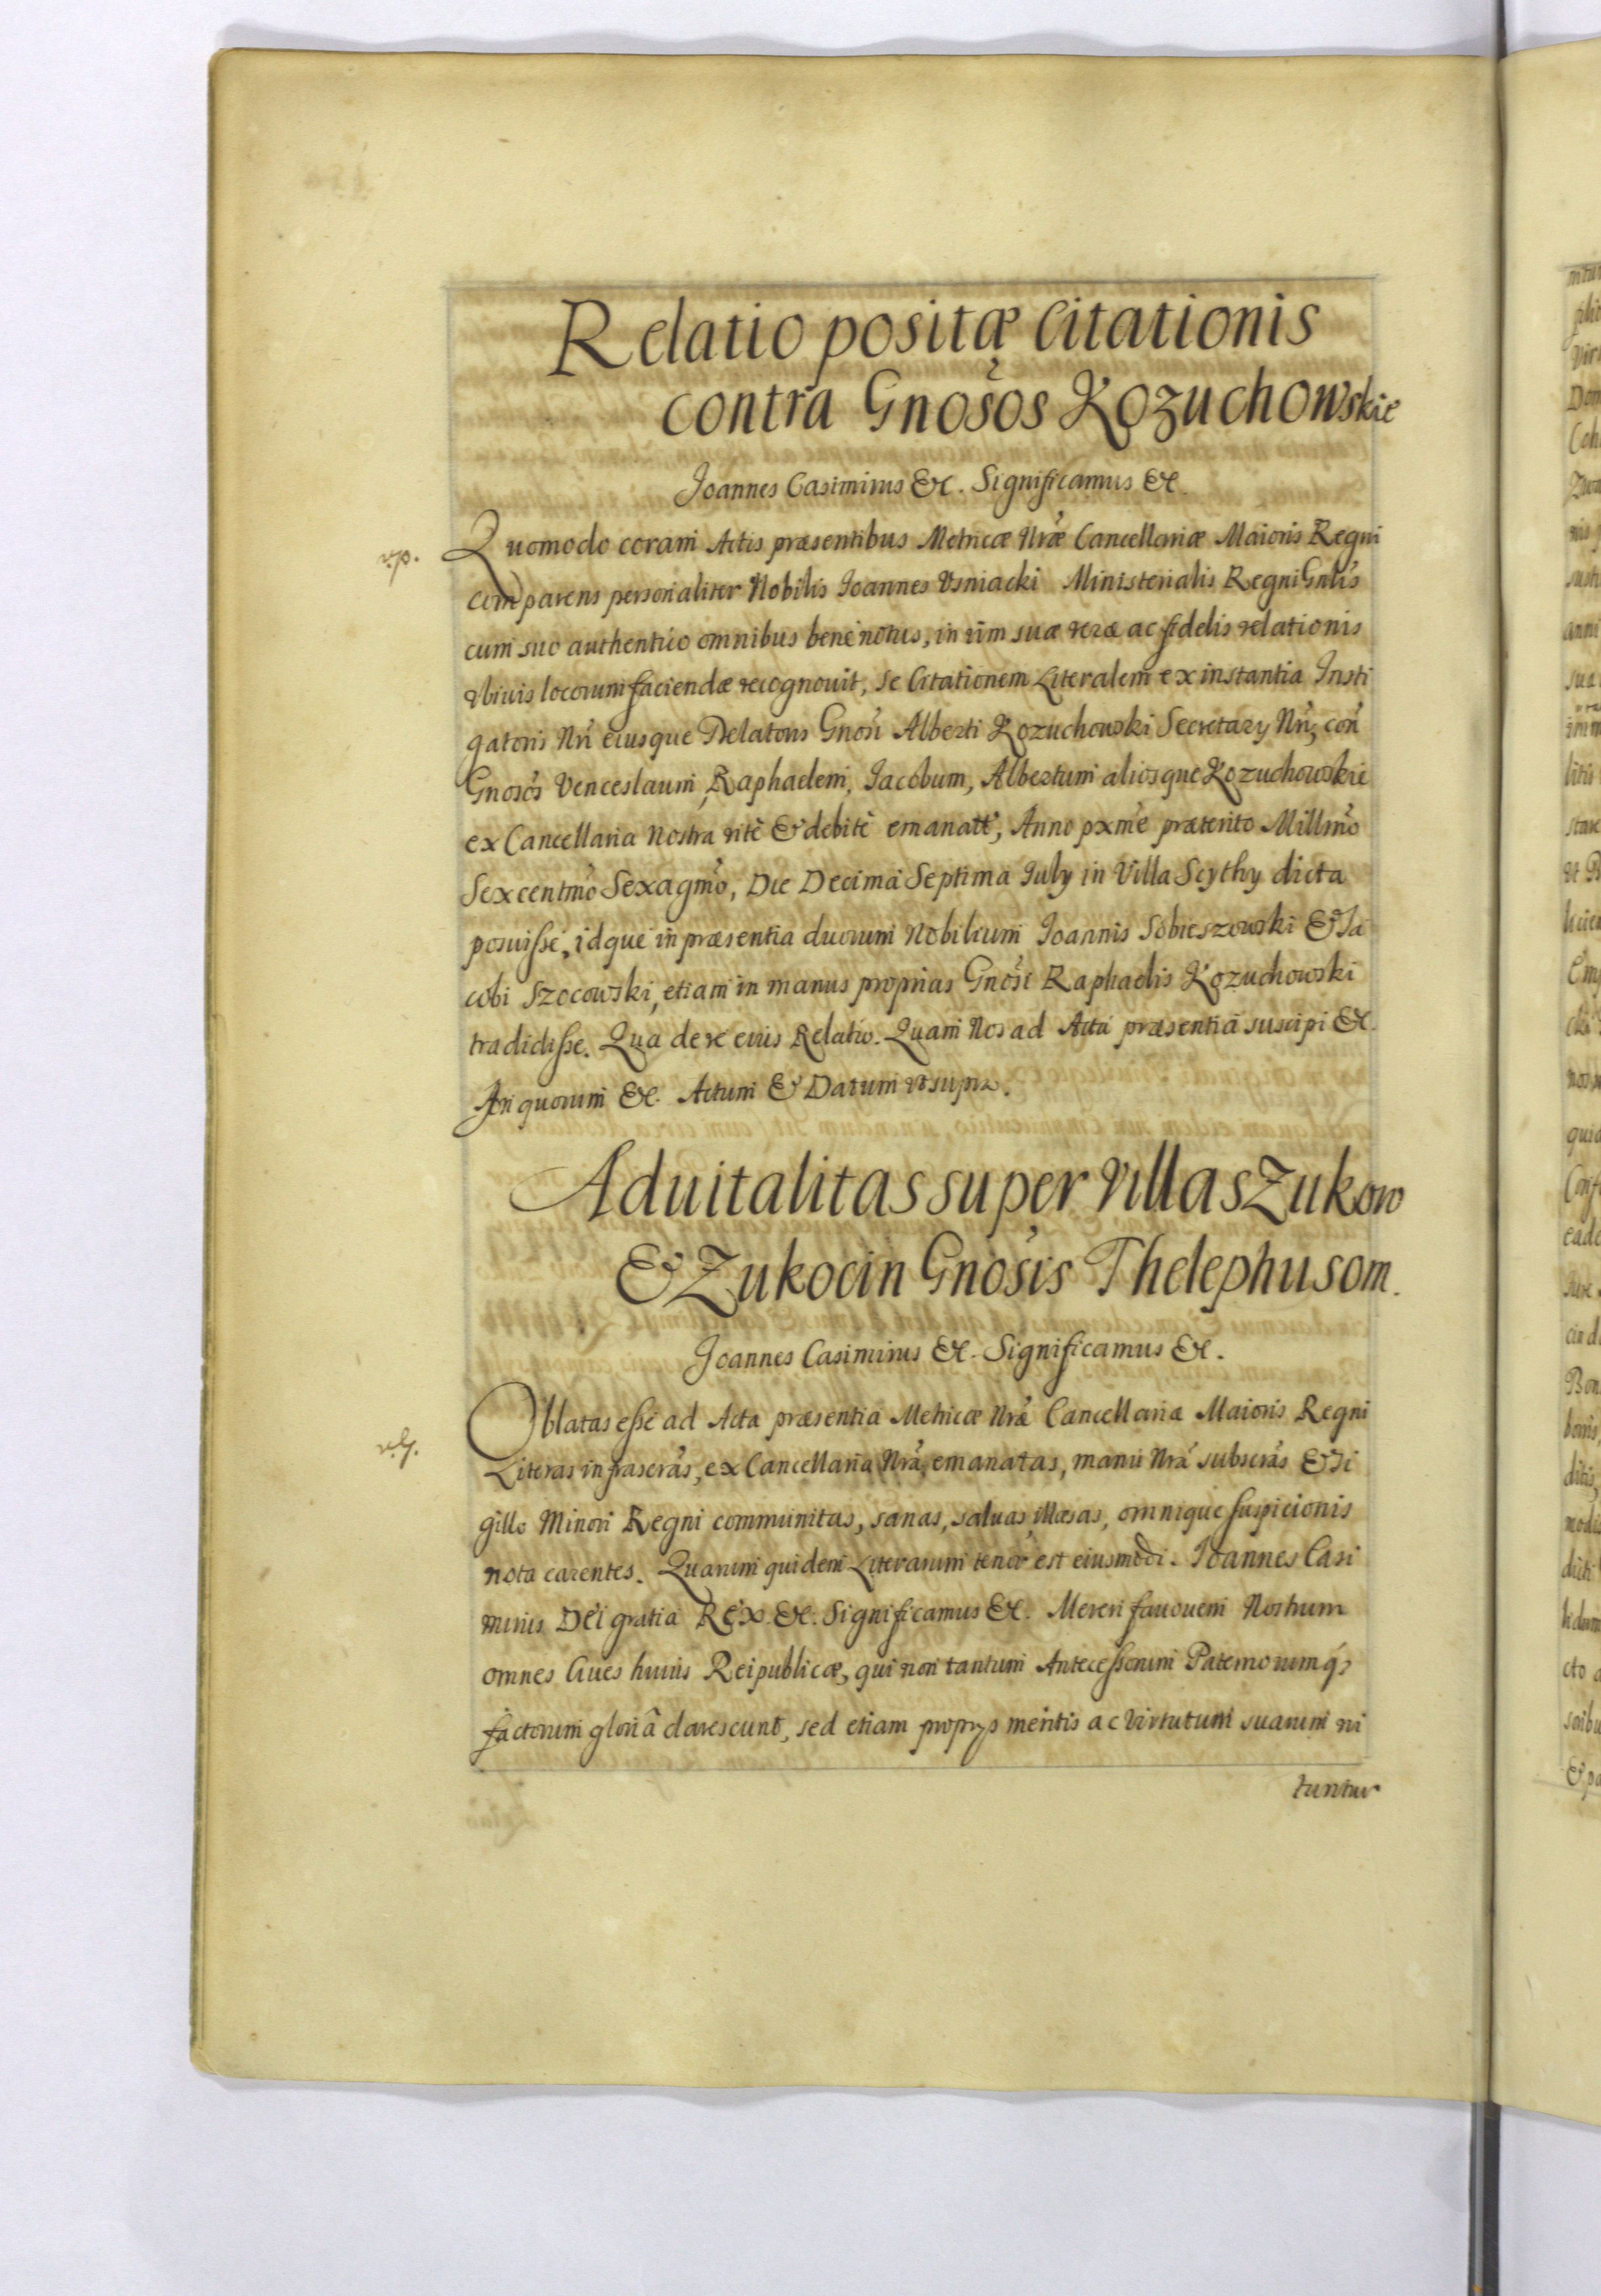 Relatio positæ Citationis
contra Gnosos Kozuchowskie
Joannes Casimirus &c. Significamus &c.
v.p.
Quomodo coram Actis præsentibus Metricæ Nræ Cancellariæ Maioris Regni
comparens personaliter Nobilis Joannes Usniacki Ministerialis Regni Gnlis
cum suo authentico omnibus bene notus, in vim suæ veræ ac fidelis relationis
vbivis locorum faciendæ recognouit, se Citationem Literalem ex instantia Insti
gatoris Nri eiusque Delatoris Gnosi Alberti Kozuchowski Secretary Nri, con
Gnosos Venceslaum, Raphaelem, Jacobum, Albertum aliosque Kozuchowskie
ex Cancellaria Nostra ritè & debitè emanatt, Anno pxme præterito Millmo
Sexcentmo Sexagmo, Die Decima Septima July in Villa Scythy dicta
posuisse, idque in præsentia duorum Nobilium Joannis Sobieszowski & Ja
cobi Szocowski, etiam in manus proprias Gnosi Raphaelis Kozuchowski
tradidisse. Qua de re eius Relatio. Quam Nos ad Acta præsentia suscipi &c.
In quorum &c. Actum & Datum vt supra.
Aduitalitas super Villas Zukow
& Zukocin Gnosis Thelephusom.
Joannes Casimirus &c. Significamus &c.
Oblatas esse ad Acta præsentia Metricæ Nræ Cancellariæ Maioris Regni
Literas infrascras, ex Cancellaria Nra emanatas, manu Nra subscras & Si
gillo Minori Regni communitas, sanas, saluas, illæsas, omnique suspicionis
nota carentes. Quarum quidem Literarum tenor est eiusmodi. Joannes Casi
mirus Dei gratia Rex &c. Significamus &c. Mereri fauorem Nostrum
omnes Ciues huius Reipublicæ, qui non tantum Antecessorum Paternorumq;
factorum gloriâ clarescunt, sed etiam proprys meritis ac Virtutum suarum ni
tuntur